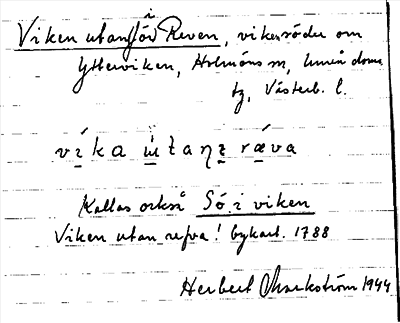 Viken utanför i Reven, vik söder om
Ytterviken, Holmöns sn, Umeå doms
tg, Västerb. l.
víka ɯ́taŋɩ rǽva
Kallas också Só i viken
Viken utan refva! bykart. 1788
Herbert Markström 1944